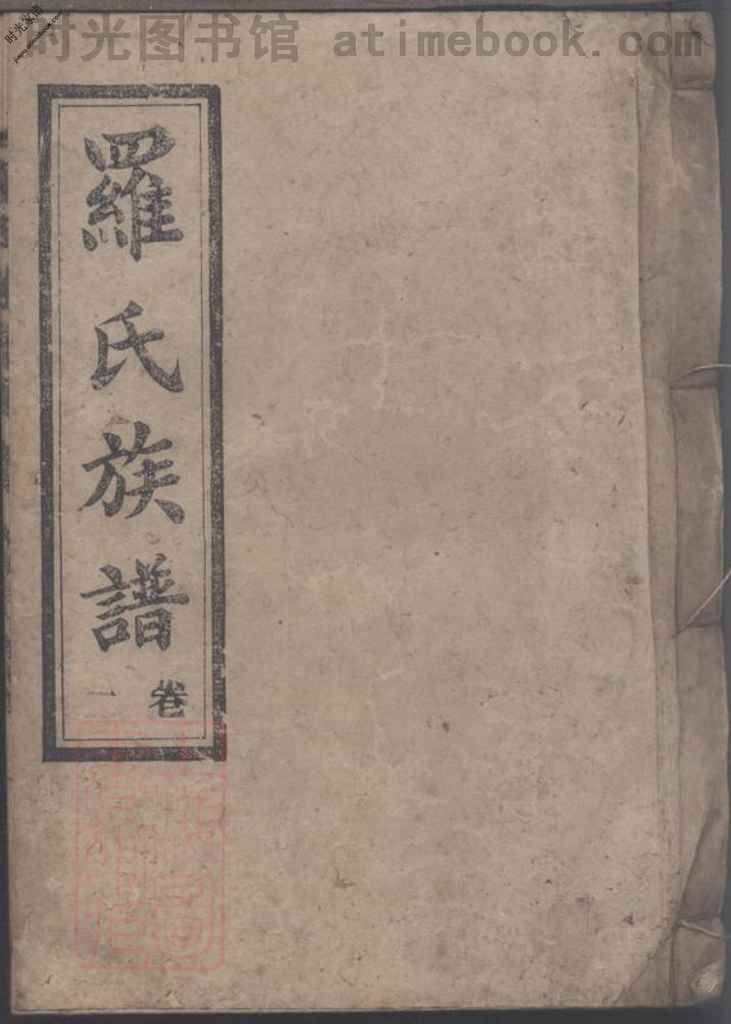 时光图书馆 atimebook.com
羅氏族譜
卷一